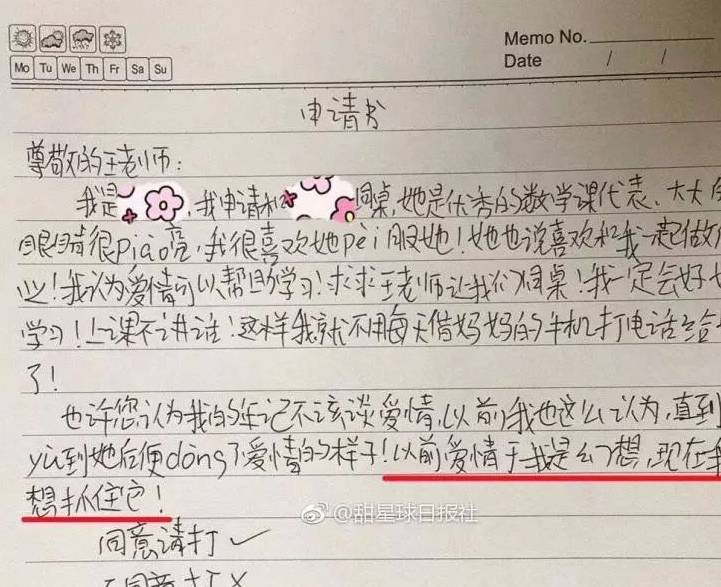 Memo No.
Date / /
Mo Tu We Th Fr Sa Su
申请书
尊敬的王老师:
我是,我申请和同桌,她是优秀的数学课代表、大大的
眼睛很piào亮,我很喜欢她pèi服她!她也说喜欢和我一起做作
业!我认为爱情可以帮助学习!求求王老师让我们同桌!我一定会好好
学习!上课不讲话!这样我就不用每天借妈妈的手机打电话给
了!
也许您认为我的年记不该谈爱情,以前我也这么认为,直到
yù到她后便dǒng了爱情的样子!以前爱情于我是幻想,现在我
想抓住它!
@甜星球日报社
同意请打✓
不同意打X